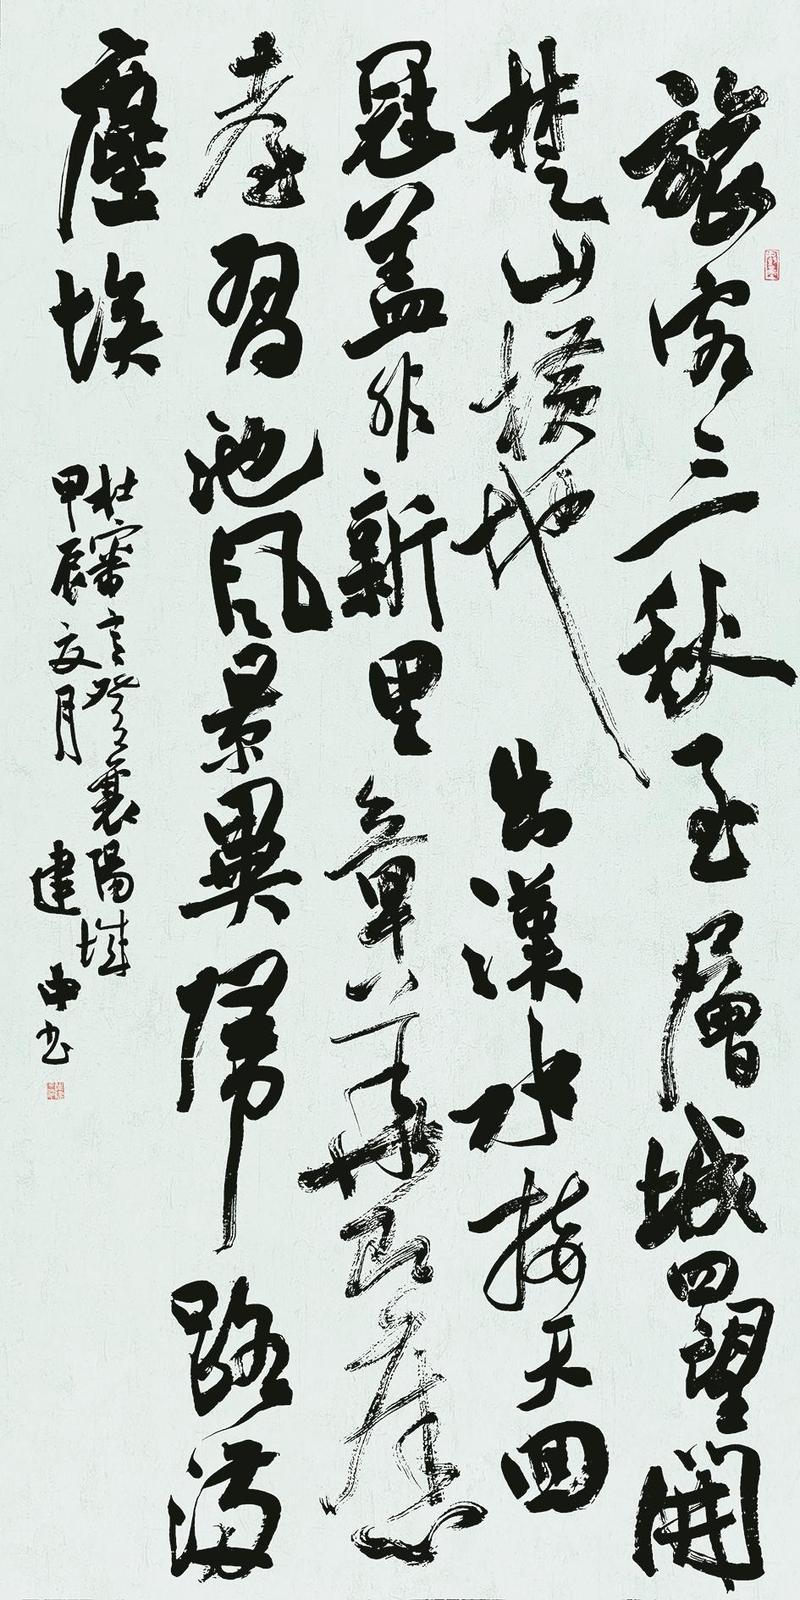 旅客三秋至層城四望開
楚山橫地出漢水接天回
冠盖非新里章華即舊
臺習池風景異歸路滿
塵埃
杜審言登襄陽城
甲辰夏月 建书